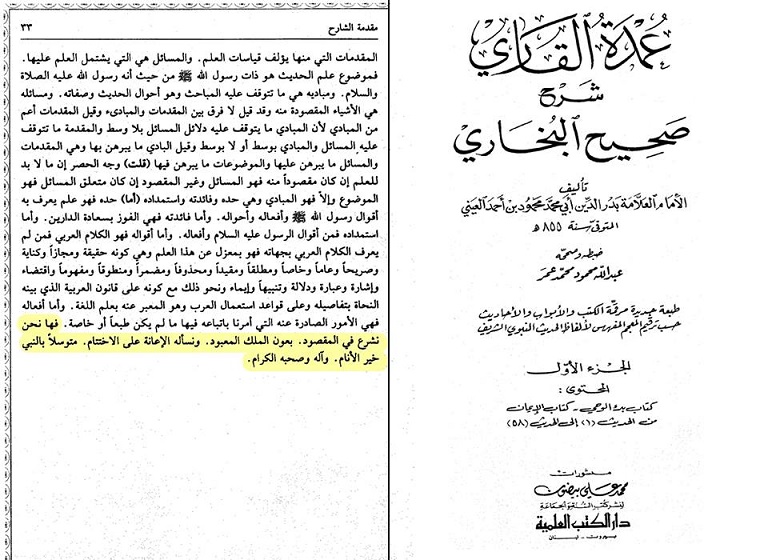 عُمدَة القَاري
شرح
صَحيح البُخاري
تأليف
الإمام العلّامة بدر الدين أبي محمد محمود بن أحمد العيني
المتوفى سنة ٨٥٥ هـ
ضبطه وصححه
عبد الله محمود محمد عمر
طبعة جديدة مرقمة الكتب والأبواب والأحاديث
حسب ترقيم المعجم المفهرس لألفاظ الحديث النبوي الشريف
الجزء الأول
المحتوى:
كتاب بدء الوحي - كتاب الإيمان
من الحديث (١) إلى الحديث (٥٨)
منشورات
محمد علي بيضون
لنشر كتب السنة والجماعة
دار الكتب العلمية
بيروت - لبنان
مقدمة الشارح ٣٣
المقدمات التي منها يؤلف قياسات العلم. والمسائل هي التي يشتمل العلم عليها.
فموضوع علم الحديث هو ذات رسول الله ﷺ من حيث أنه رسول الله عليه الصلاة
والسلام. ومباديه هي ما تتوقف عليه المباحث وهو أحوال الحديث وصفاته. ومسائله
هي الأشياء المقصودة منه وقد قيل لا فرق بين المقدمات والمبادىء وقيل المقدمات أعم
من المبادي لأن المبادي ما يتوقف عليه دلائل المسائل بلا وسط والمقدمة ما تتوقف
عليه المسائل والمبادي بوسط أو لا بوسط وقيل البادي ما يبرهن بها وهي المقدمات
والمسائل ما يبرهن عليها والموضوعات ما يبرهن فيها (قلت) وجه الحصر إن ما لا بد
للعلم إن كان مقصوداً منه فهو المسائل وغير المقصود إن كان متعلق المسائل فهو
الموضوع وإلا فهو المبادي وهي حده وفائدته واستمداده (أما) حده فهو علم يعرف به
أقوال رسول الله ﷺ وأفعاله وأحواله. وأما فائدته فهي الفوز بسعادة الدارين. وأما
استمداده فمن أقوال الرسول عليه السلام وأفعاله. وأما أقواله فهو الكلام العربي فمن لم
يعرف الكلام العربي بجهاته فهو بمعزل عن هذا العلم وهي كونه حقيقة ومجازاً وكناية
وصريحاً وعاماً وخاصاً ومطلقاً ومقيداً ومحذوفاً ومضمراً ومنطوقاً ومفهوماً واقتضاء
وإشارة وعبارة ودلالة وتنبيهاً وإيماء ونحو ذلك مع كونه على قانون العربية الذي بينه
النحاة بتفاصيله وعلى قواعد استعمال العرب وهو المعبر عنه بعلم اللغة. وأما أفعاله
فهي الأمور الصادرة عنه التي أمرنا باتباعه فيها ما لم يكن طبعاً أو خاصة. فها نحن
نشرع في المقصود. بعون الملك المعبود. ونسأله الإعانة على الاختتام. متوسلاً بالنبي
خير الأنام. وآله وصحبه الكرام.